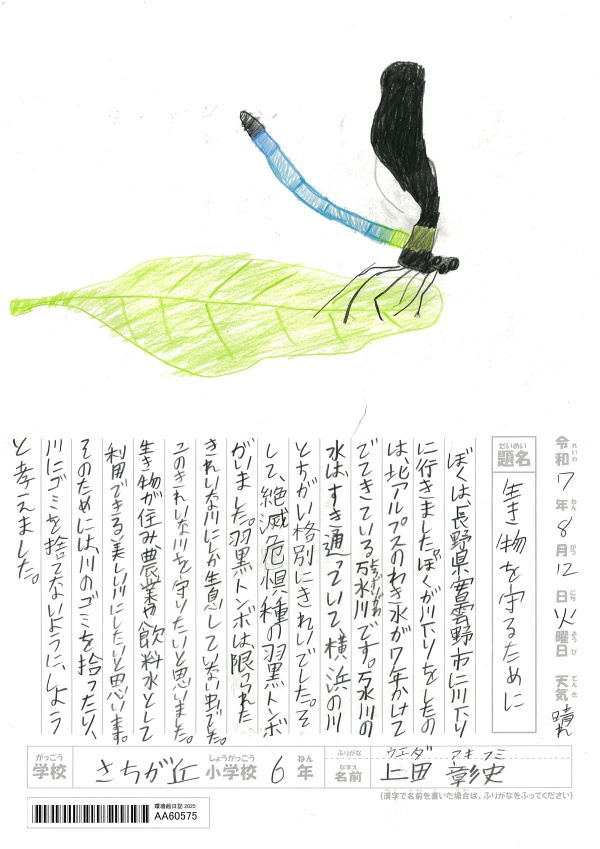 令和7年8月12日火曜日 天気 晴れ
れいわ ねん がつ にち ようび てんき
だいめい
題名
生き物を守るために
ぼくは、長野県安曇野市に川下り
に行きました。ぼくが川下りをしたの
は、北アルプスのわき水が7年かけて
でてきている万水川です。万水川の
水はすき通っていて、横浜の川
とちがい格別にきれいでした。そ
して、絶滅危惧種の羽黒トンボ
がいました。羽黒トンボは限られた
きれいな川にしか生息していない虫でした。
このきれいな川を守りたいと思いました。
生き物が住み農業や飲料水として
利用できる美しい川にしたいと思います。
そのためには、川のゴミを拾ったり、
川にゴミを捨てないようにしよう
と考えました。
がっこう しょうがっこう ねん ふりがな ウエダ アキフミ
学校 さちが丘 小学校 6年 なまえ 名前 上田 彰史
(漢字で名前を書いた場合は、ふりがなをふってください)
環境絵日記 2025
AA60575